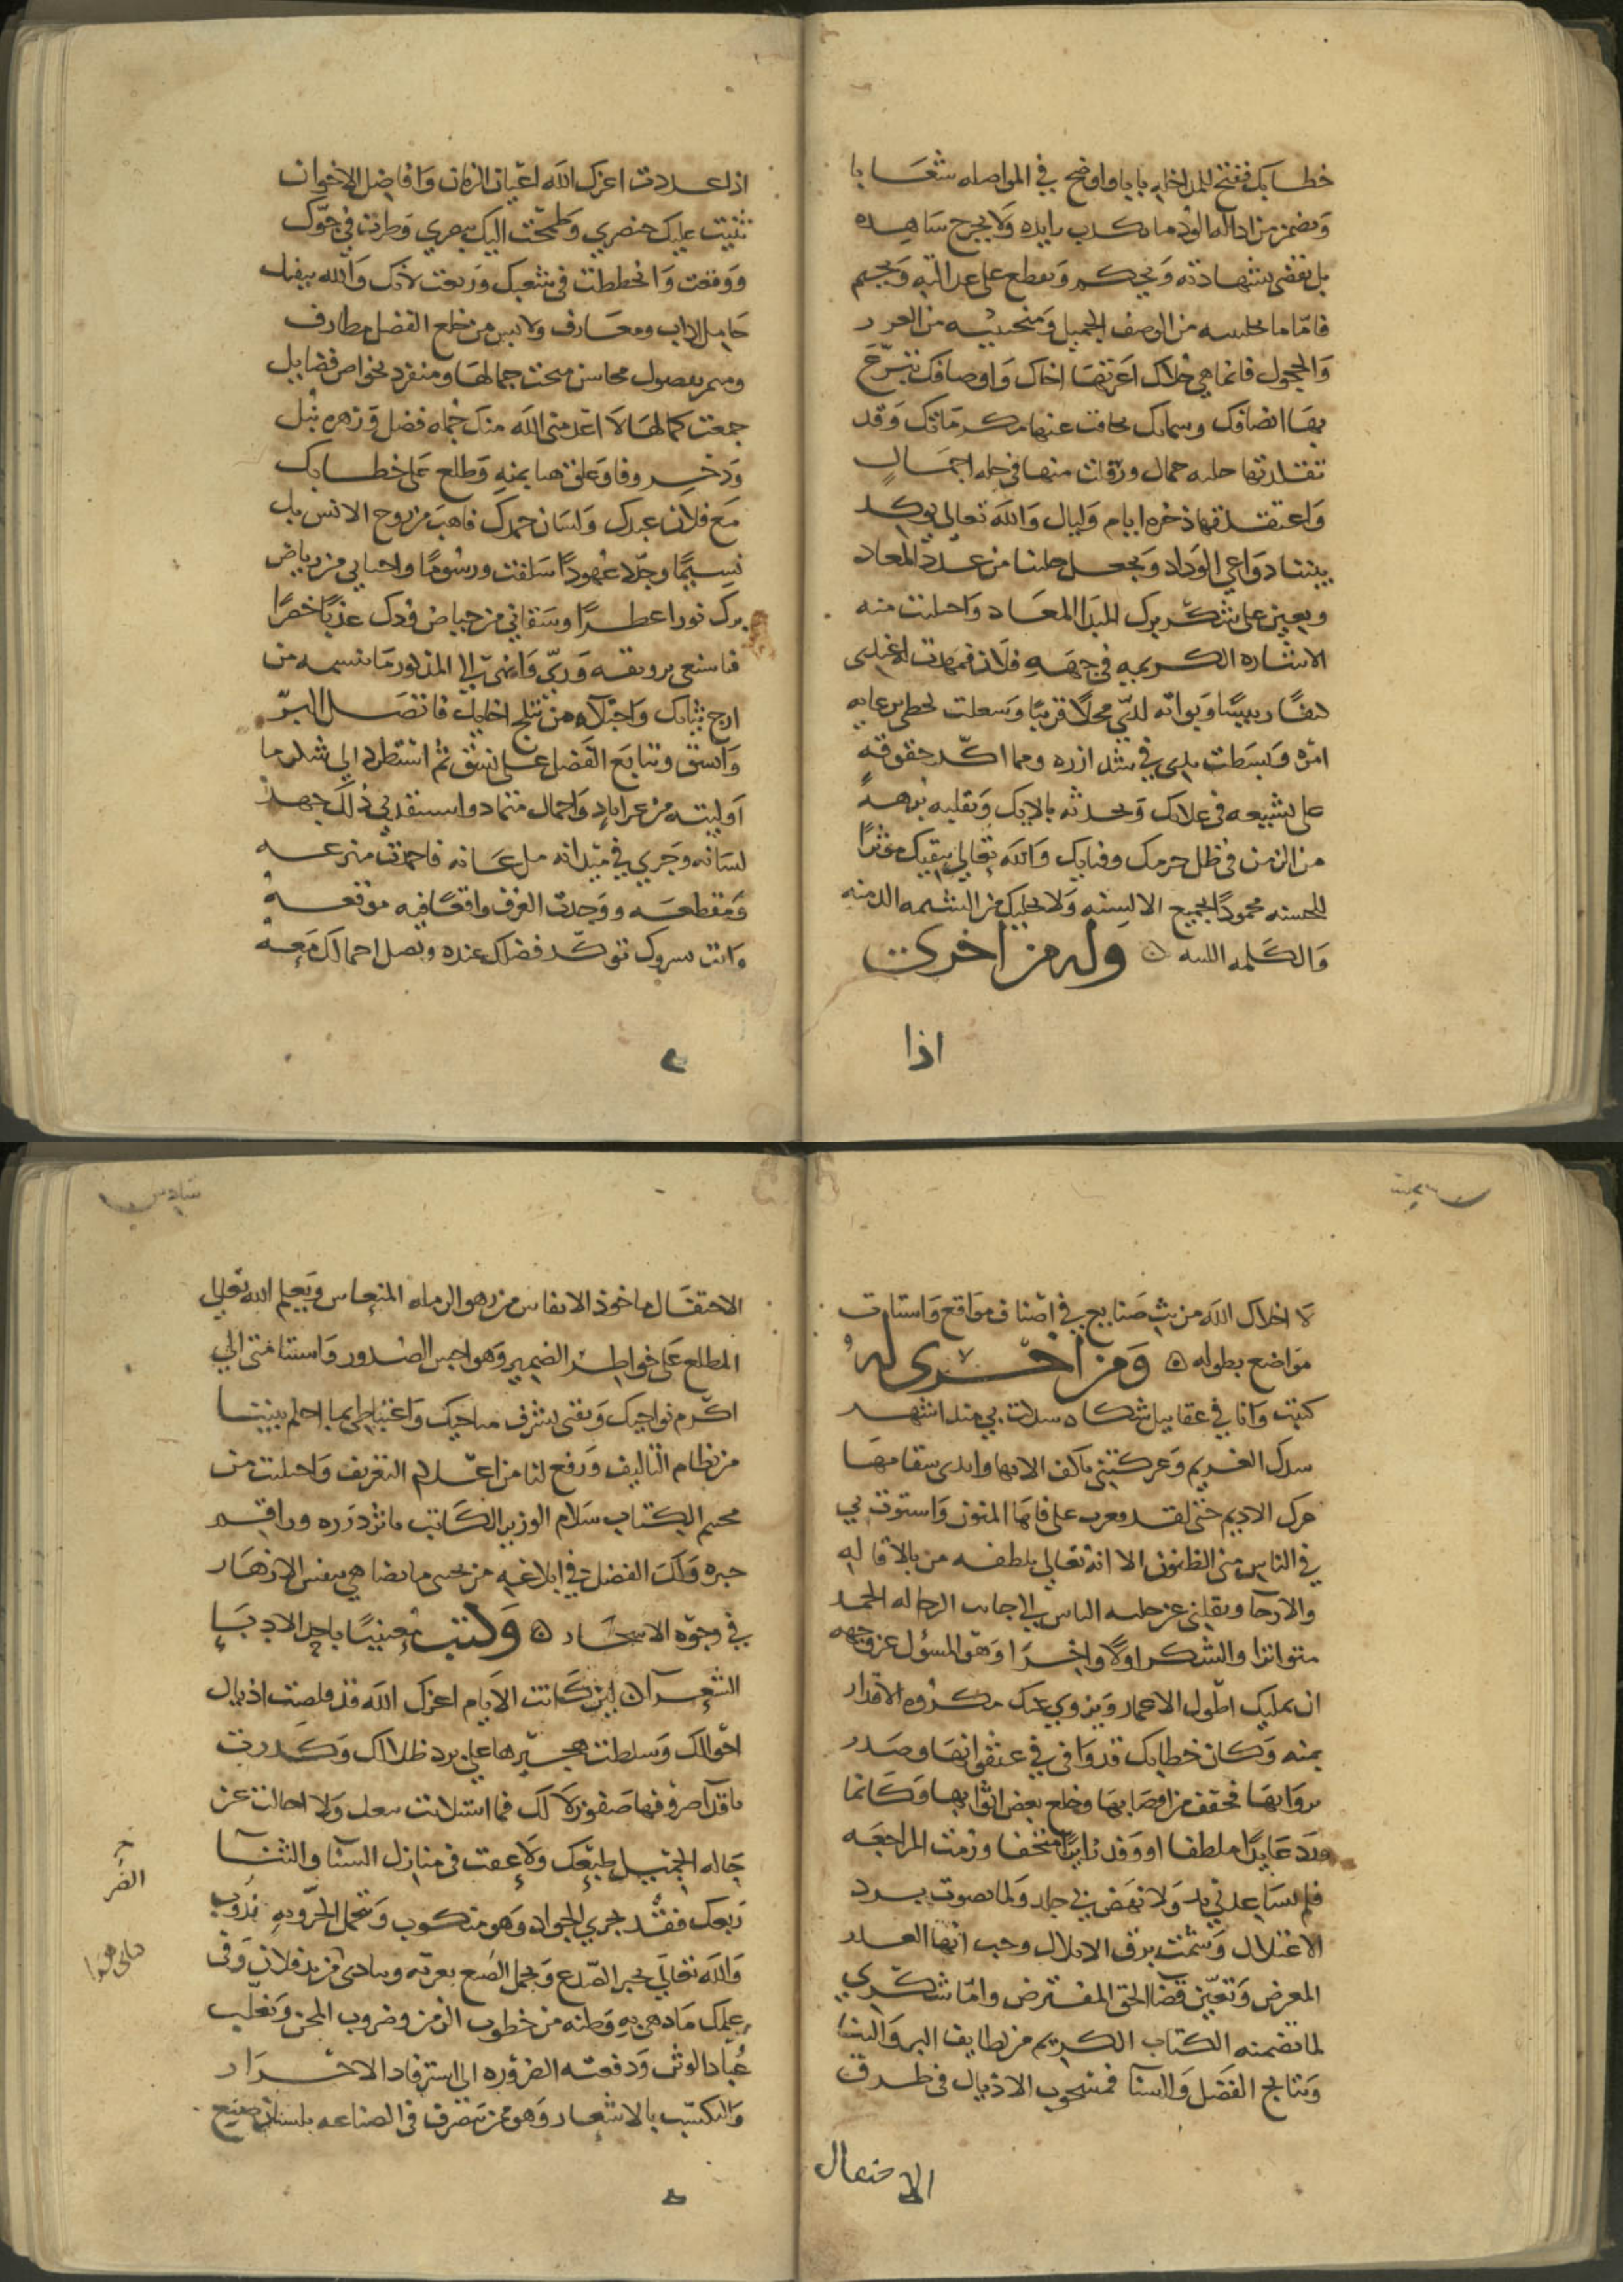 خطابك ففتح للمداخله بابا واوضح في المواصله شعابا
وتضمن من ادالة الود ما لا يكذب رايده ولا يجرح شاهده
بل نقضى بشهادته ونحكم ونقطع على عدالته ونجسم
فاما ما من الوصف الجميل ومنحتنيه من الغرر
والحجول فانما هي خلاك اعرتها اخاك واوصافك تبرع
بها انصافك وسماتك تجافت عنها مكرماتك وقد
تقلدتها حليه جمال ورفلت منها في حله اجمال
واعتقدتها ذخره ايام وليال والله تعالى يوكد
بيننا دواعي الوداد ويجعل خلتنا من عدد المعاد
ويعين على شكر برك المبدا المعاد واحتلت منه
الاشاره الكريمه في جهه فلان فمهدت له
كنفا وبواته لدي محلا قريبا وسعلت بحطى
امره وبسطت يدي في شد ازره ومما اكد حقوقه
على تشيعه في علاك وتحدثه بالايك وتقلبه برهة
من الزمن في ظل حرمك وفنايك والله تعالى يبقيك موثرا
للحسنه محمودا بجميع الالسنه ولا يخليك من الشيمه
والكلمه وله من اخرى
اذا
اذا عددت اعزك الله اعيان الزمان وافاضل الاخوان
ثنيت عليك خنصري وطمحت اليك ببصري وطرت في جوك
ووقعت وانحططت في شعبك وربعت لانك والله بيفك
حامل اداب ومعارف ولابس من خلع الفضل مطارف
محاسن منحت جمالها ومنفرد بخواص فضايل
جمعت كمالها لا اعدمني الله منك فضل وزهره نبل
وذخر وفا وعلق بمنه وطلع على خطابك
مع فلان عبدك ولسان حمدك فاهب من روح الانس بك
نسيما وجدد عهودا سلفت ورسوما واجناني من رياض
برك نورا عطرا وسقاني من حياض ودك عذبا خصرا
فاستعى برونقه وريي وانهى الي المذكور ما نسمه من
ارج ثنايك واجتلاه من اخايك فاتصل البر
واتسق وتتابع الفضل على نسق ثم استطرد الي شكر ما
اوليته من غر اياد واجمال متماد واستنفد في ذلك جهد
لسانه وجري في ميدانه مل عنانه فاحمدت منزعه
ومقطعه ووجدت العرف واقعا فيه موقعه
وانت بسروك توكد فضلك عنده وتصل اجمالك معه
لا اخلاك الله من بث صنايع في اصناف مواقع واستنات
مواضع بطوله ومن اخرى له
كتبت وانا في عقابيل شكاه سدكت بي منذ اشهر
سدك الغريم وعركتني باكف الامها وايدى سقامها
عرك الاديم حتى لقد على فاها المنون واستوت بي
في الناس منى الظنون الا انه تعالى بلطفه من بالاقاله
والارجا ونقلني عن جلبه الياس الي جانب الرجا له الحمد
متواترا والشكر اولا واخرا وهو المسؤل عز وجهه
ان يمليك اطول الاعمار ويزوي عنك مكروه الاقدار
بمنه وكان خطابك قد وافى في عنفوانها وصدر
بروايها فخفف من اوصابها وخلع بعض اثوابها وكانما
ورد عايدا ملطفا او وفد زايرا متحفا ورمت المراجعه
فلم تساعدني يد ولا نهض بي جلد ولما نضوت برد
الاعتلال وشمت برق الابلال وجب انها العذر
المعرض وتعين قضا الحق المفترض واما شكري
لما تضمنه الكتاب الكريم من لطايف البر والثنا
ونتايج الفضل والسنا فمسحوب الاذيال في طرق
الاحتفال
الاحتفال ماخوذ الانفاس من زهو المنعاس ويعلم الله تعالى
المطلع على خواطر الضمير وهواجس الصدور واستنامتي الي
اكرم نواحيك وثقتي بشرف مناحيك واغتباطي بما احكم بيننا
من نظام التاليف ورفع لنا من اعلام التعريف واجتليت من
مختم الكتاب سلام الوزير الكاتب ما نثر درره وراقم
حبره ولك الفضل في ابلاغه من تحيتي ما يضاهي بنفس الازهار
في وجوه الاسحار وكتب معنيا باحد الادبا
الشعرآ لين كانت الايام اعزك الله قد قلصت اذيال
احوالك وسلطت هجيرها على برد ظلالك وكدرت
باقذآ صروفها صفو زلالك فما استلانت ولا احالت عن
حاله الجميل طبعك ولا عفت في منازل السنا والثنا
ربعك فقد يجري الجواد وهو منكوب وتتحمل الحر وبه ندوب
والله تعالى يجبر الصدع ويجمل الصنع بعزته فلان وفي
علمك ما دهي به وطنه من خطوب الزمن وضروب المحن وتغلب
عباد الوثن ودفعته الضروره الى استرفاد الاحرار
والتكسب بالاشعار وهو ممن تصرف في الصناعه بلسان صنيع